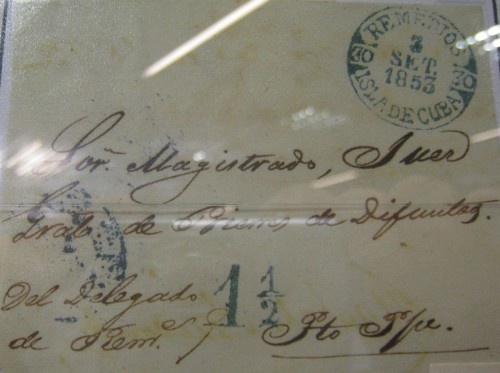 REMEDIOS
3
SET
1853
ISLA DE CUBA
Sor. Magistrado, Juez
Gral. de Bienes de Difuntos.
Del Delegado
de Rem.s
1 1/2
Pto Ppe.